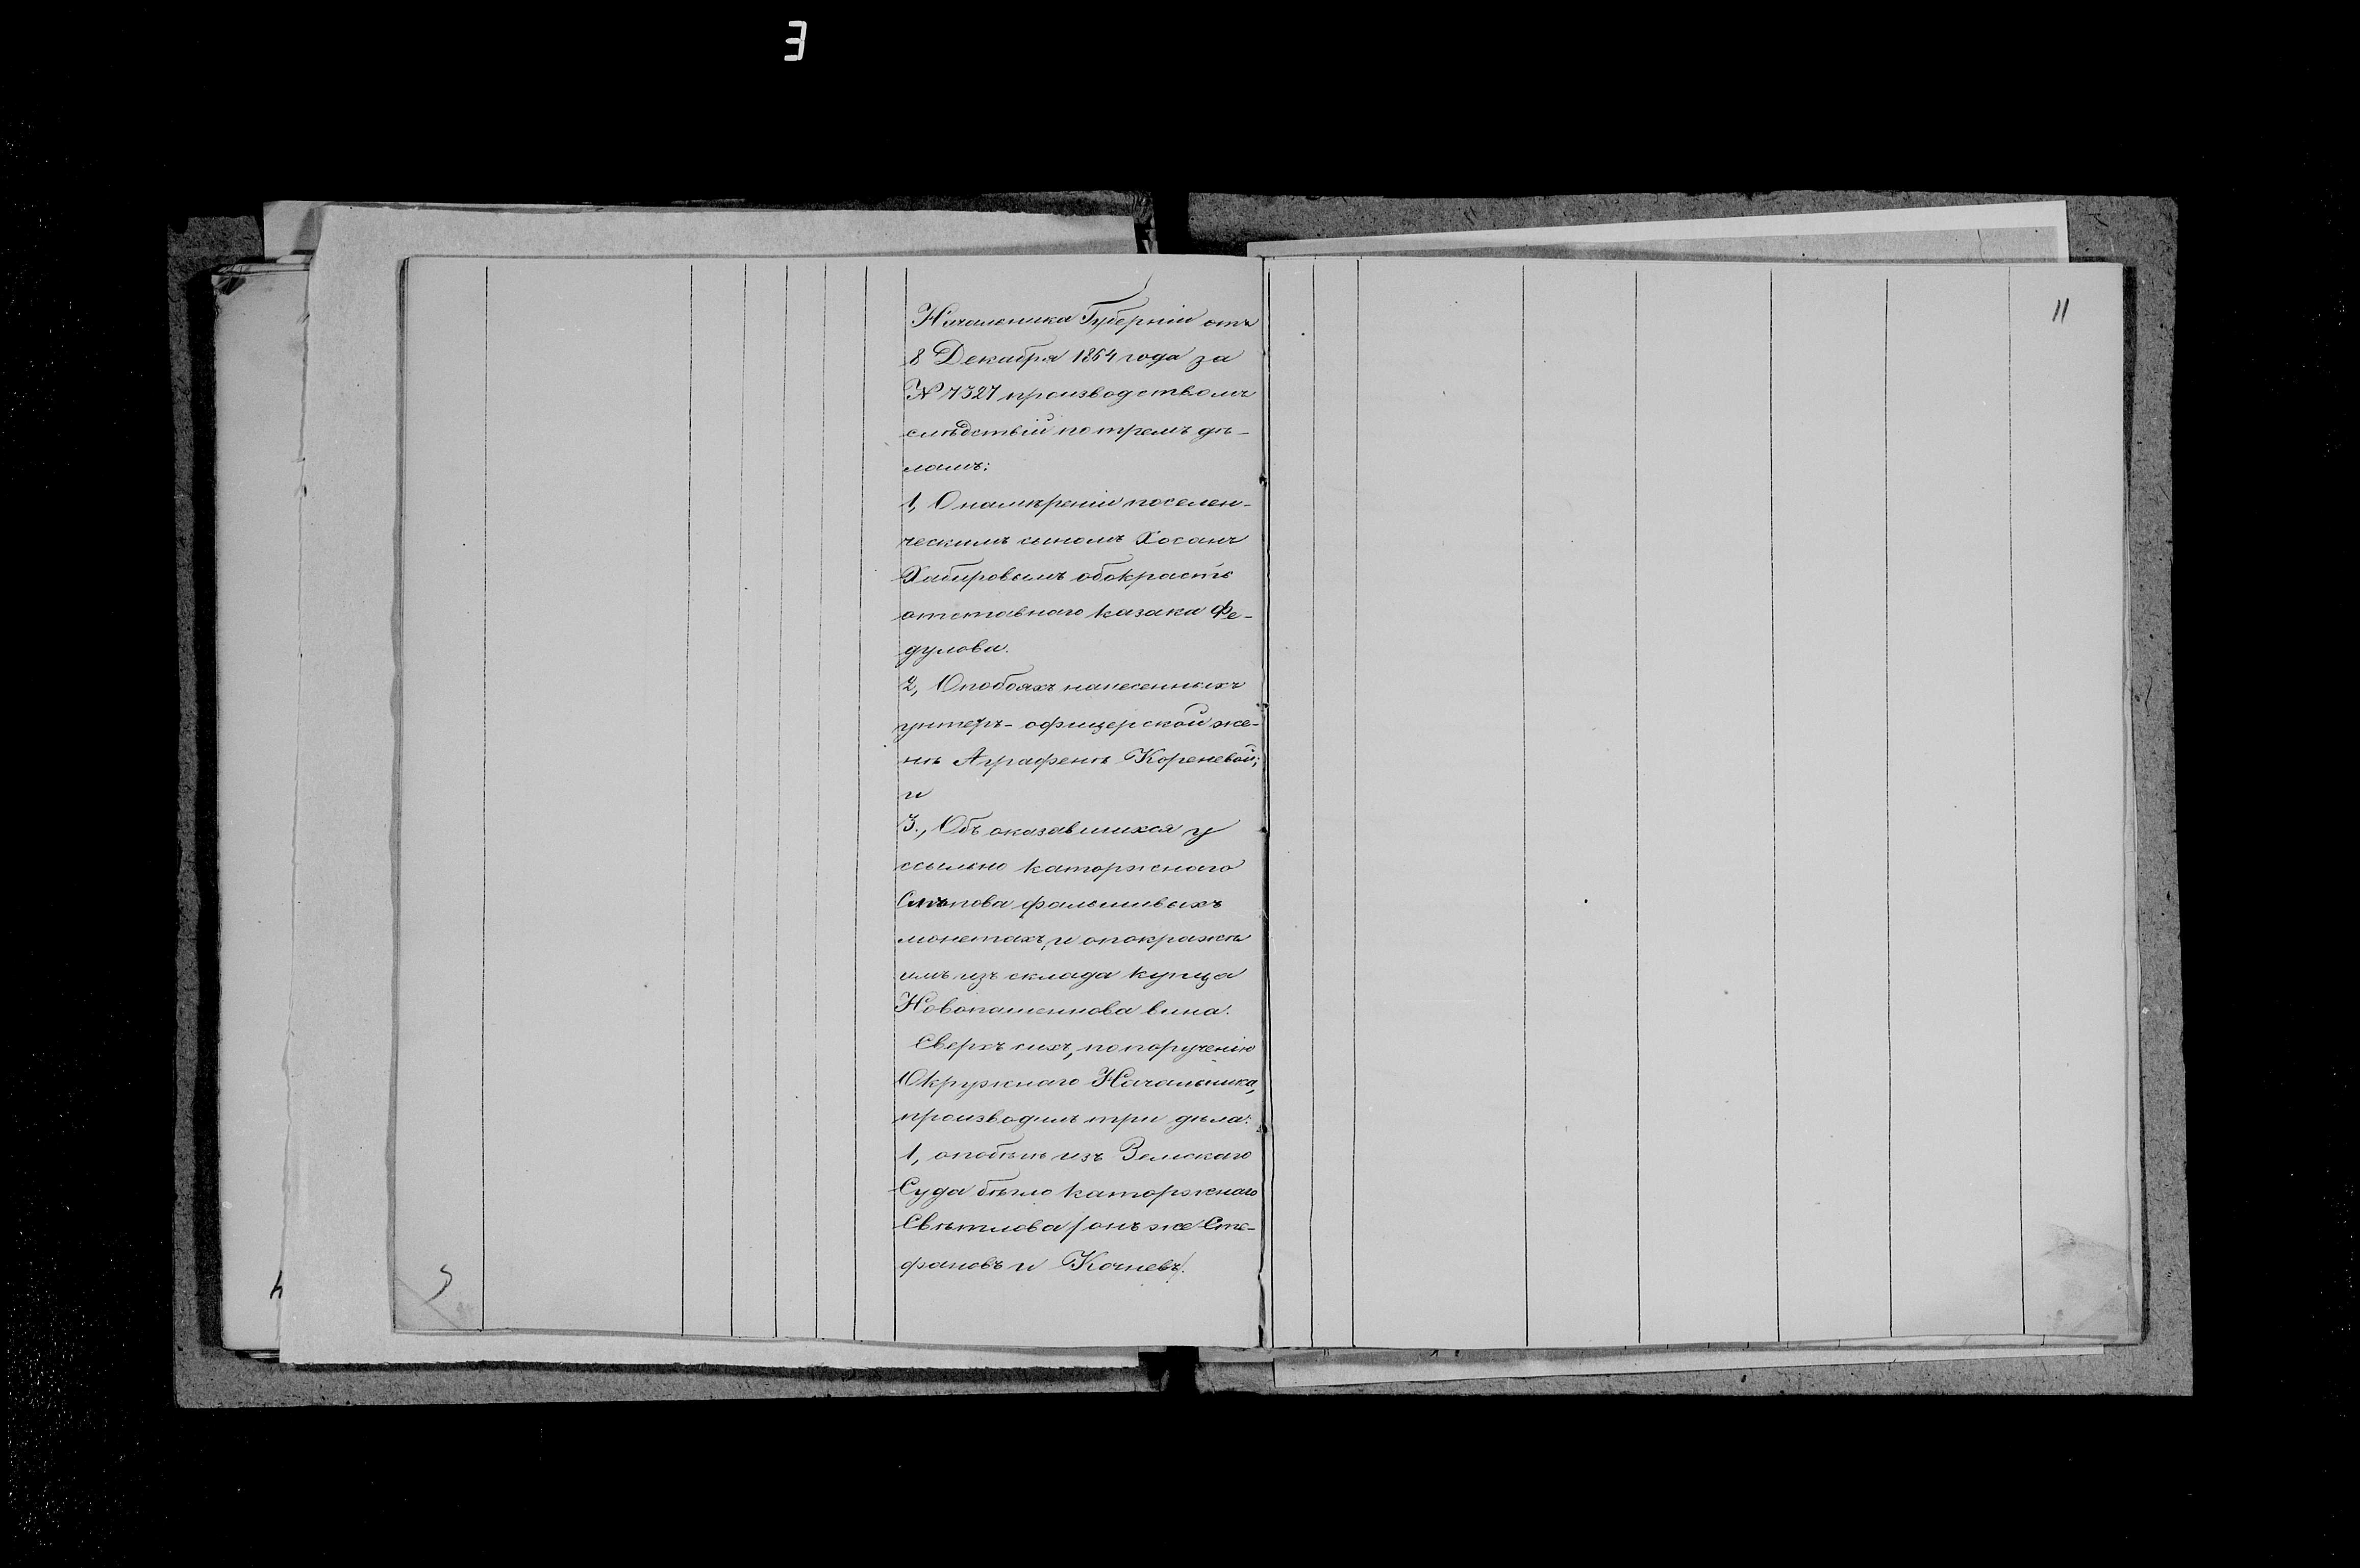 E
11
Начальника Губерніи отъ
8 Декабря 1864 года за
№ 7327 производствомъ
слѣдствій по тремъ дѣ-
ламъ:
1, О намѣреніи поселен-
ческимъ сыномъ Хосанъ
Хабировымъ обокрасть
отставнаго казака Фе-
дулова.
2, О побояхъ нанесенныхъ
унтеръ-офицерской же-
нѣ Аграфенѣ Кореневой;
и
3., Объ оказавшихся у
ссыльно каторжнаго
Слѣпова фальшивыхъ
монетахъ, и о покражѣ
имъ изъ склада купца
Новопашеннова вина.
Сверхъ сихъ, по порученію
Окружнаго Начальника,
производилъ три дѣла:
1, о побѣгѣ изъ Земскаго
Суда бѣгло каторжнаго
Свѣтлова / онъ же Сте-
фановъ и Кочневъ/.
5
4